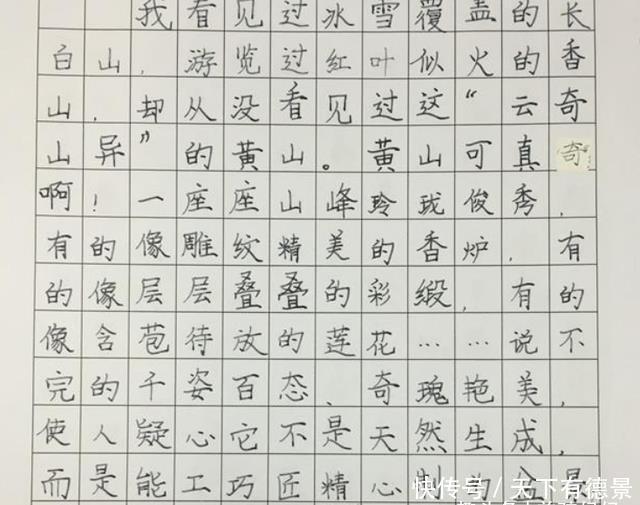 我看见过冰雪覆盖的长
白山，游览过红叶似火的香
山，却从没看见过这“云奇
山异”的黄山。黄山可真奇
啊！一座座山峰玲珑俊秀，
有的像雕纹精美的香炉，有
的像层层叠叠的彩缎，有的
像含苞待放的莲花……说不
完的千姿百态、奇瑰艳美，
使人疑心它不是天然生成，
而是能工巧匠精心制
快传号／天下有德景